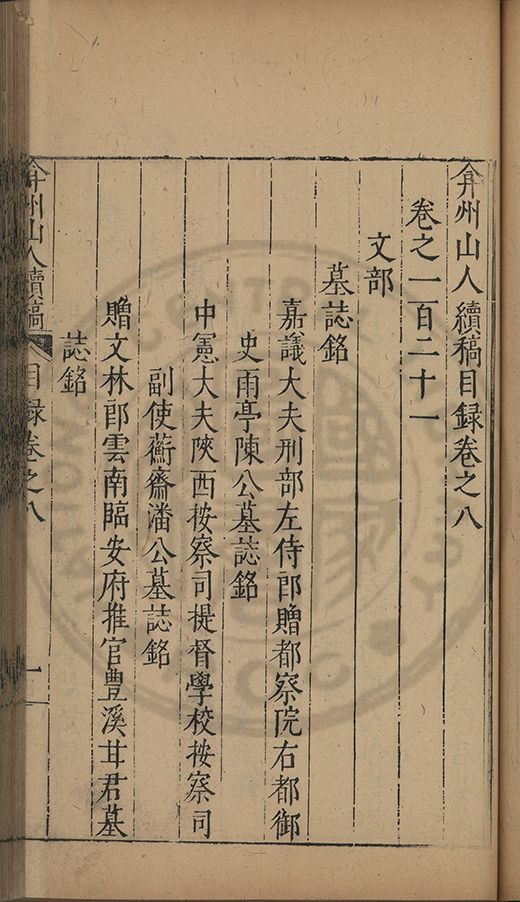 弇州山人續稿目録卷之八
卷之一百二十一
文部
墓誌銘
嘉議大夫刑部左侍郎贈都察院右都御
史雨亭陳公墓誌銘
中憲大夫陝西按察司提督學校按察司
副使蘅齋潘公墓誌銘
贈文林郎雲南臨安府推官豊溪甘君墓
誌銘
弇州山人續稿 目録卷之八 一